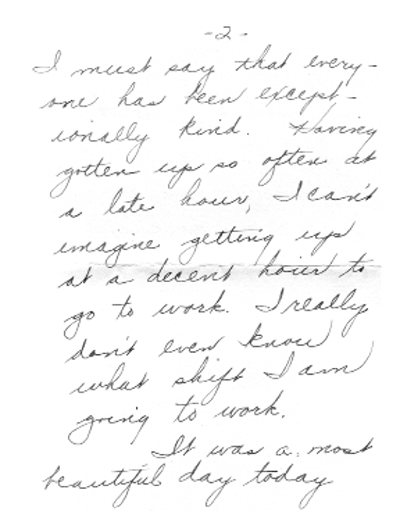 -2-
I must say that every-
one has been except-
ionally kind. Having
gotten up so often at
a late hour, I can't
imagine getting up
at a decent hour to
go to work. I really
don't even know
what shift I am
going to work.
It was a most
beautiful day today